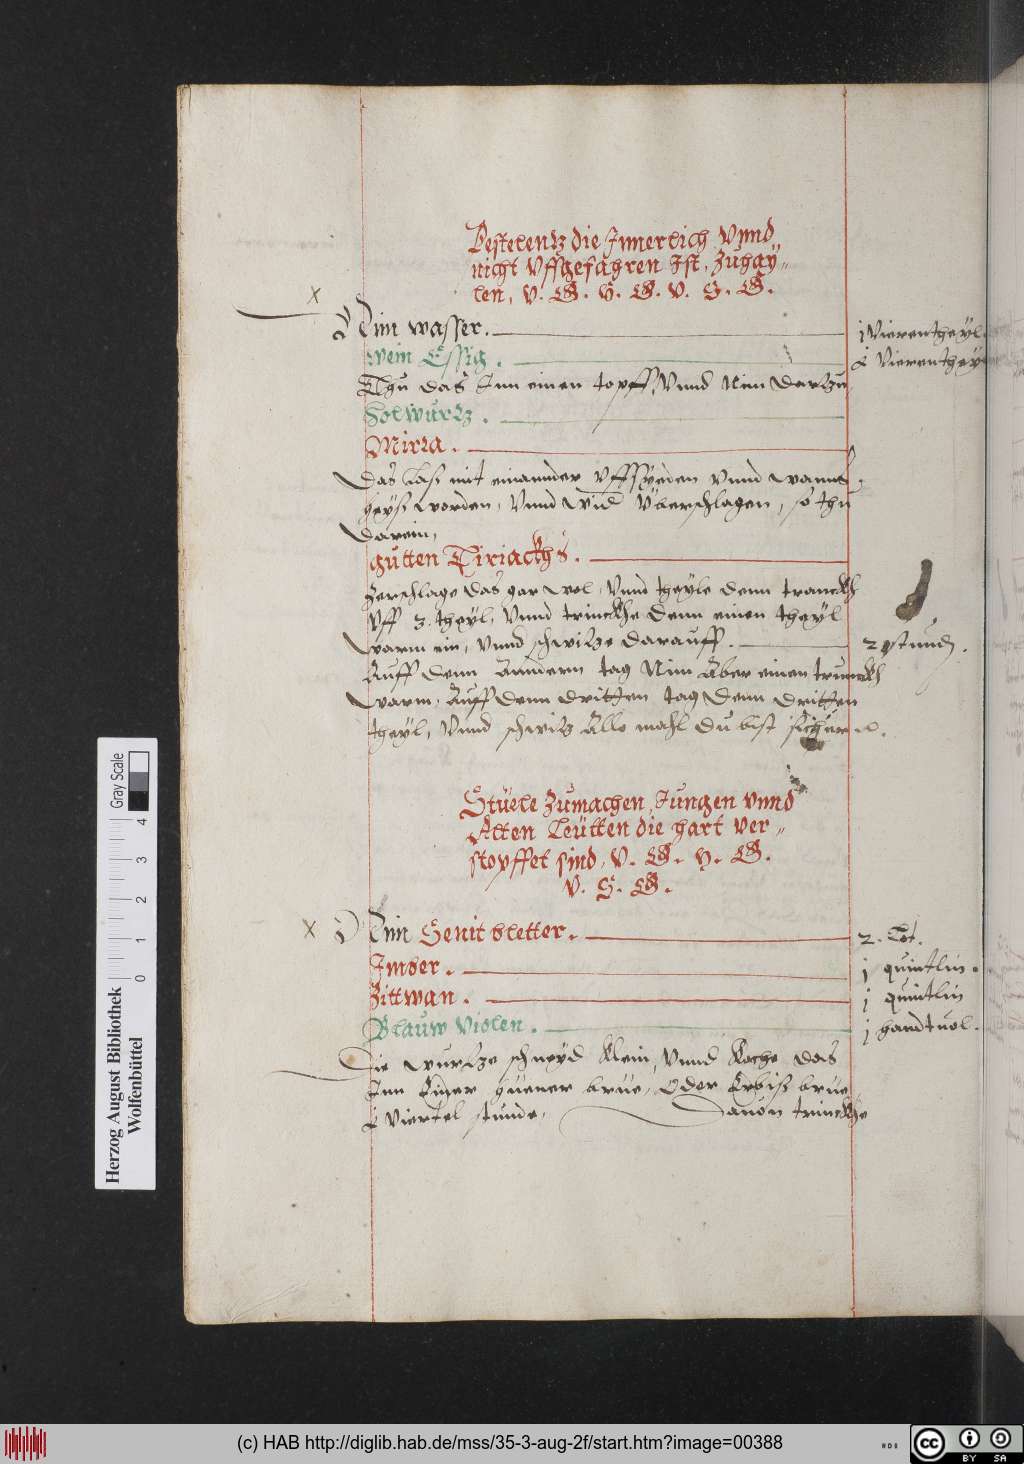 Pestelentz die Innerlich Vnnd
nicht Vffgefahren Ist, Zuhay„
len, V. G. H. G. V. H. G.
x
Nim wasser. j Vierentheyl.
wein Essig. Vierenthey
Thu das Inn einen topff, Vnnd Nim dartzu
Holwurtz.
Mirra.
Das Lass mit einannder Vffsyeden Vnnd
heyss worden, Vnnd Vberschlagen, so thu
darein,
gutten Tiriackhs.
Zerschlage das gar wol, Vnnd theyle denn tranckh
Vff 3. theyl, Vnnd trinckhe denn einen theyl
warm ein, Vnnd schwitze darauff. 2 stund.
Auff denn Anndern tag Nim Aber einen trunckh
warm, Auff denn dritten tag denn dritten
theyl, Vnnd schwitz Alle mahl du bist sicher
Stüele Zumachen, Jungen Vnnd
Alten Leütten die hart ver„
stopffet sind, V. G. H. G.
V. H. G.
x
Nim Senit bletter. 2. Lot.
Imber. j quintlin.
Zittwan. j quintlin
Blauw Violen. j handtuol.
Die wurtze schneyd klein, Vnnd koche das
Inn Einer huener brue, Oder Erbiss brue
Viertel stunde, Dauon trinckhe
Herzog August Bibliothek
Wolfenbüttel
Gray Scale
0 1 2 3 4
(c) HAB http://diglib.hab.de/mss/35-3-aug-2f/start.htm?image=00388
cc BY SA